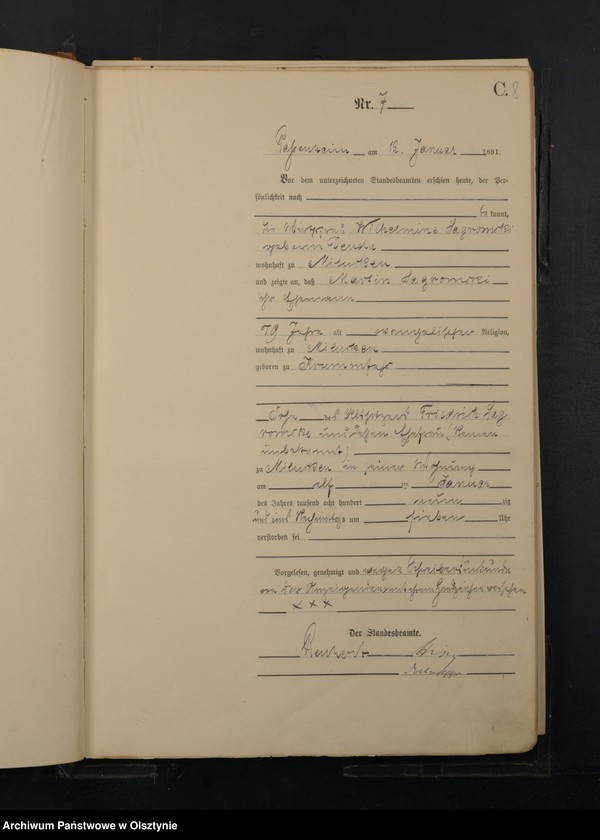 C. 8
Nr. 7
Passenheim am 12. Januar 1891.
Vor dem unterzeichneten Standesbeamten erschien heute, der Per-
sönlichkeit nach
be kannt,
die Ehefrau Wilhelmine Sagromski
geborene
wohnhaft zu Milucken
und zeigte an, daß Martin Sagromski
ihr Ehemann
79 Jahre alt evangelischer Religion,
wohnhaft zu Milucken
geboren zu
Sohn des Friedrich Sag
romski und dessen Ehefrau (Namen
unbekannt)
zu Milucken in seiner Wohnung
am elf ten Januar
des Jahres tausend acht hundert neun zig
und eins Nachmittags um sieben Uhr
verstorben sei
Vorgelesen, genehmigt und wegen Schreibensunkunde
von der Anzeigenden mit ihrem Handzeichen versehen
+ + +
Der Standesbeamte.